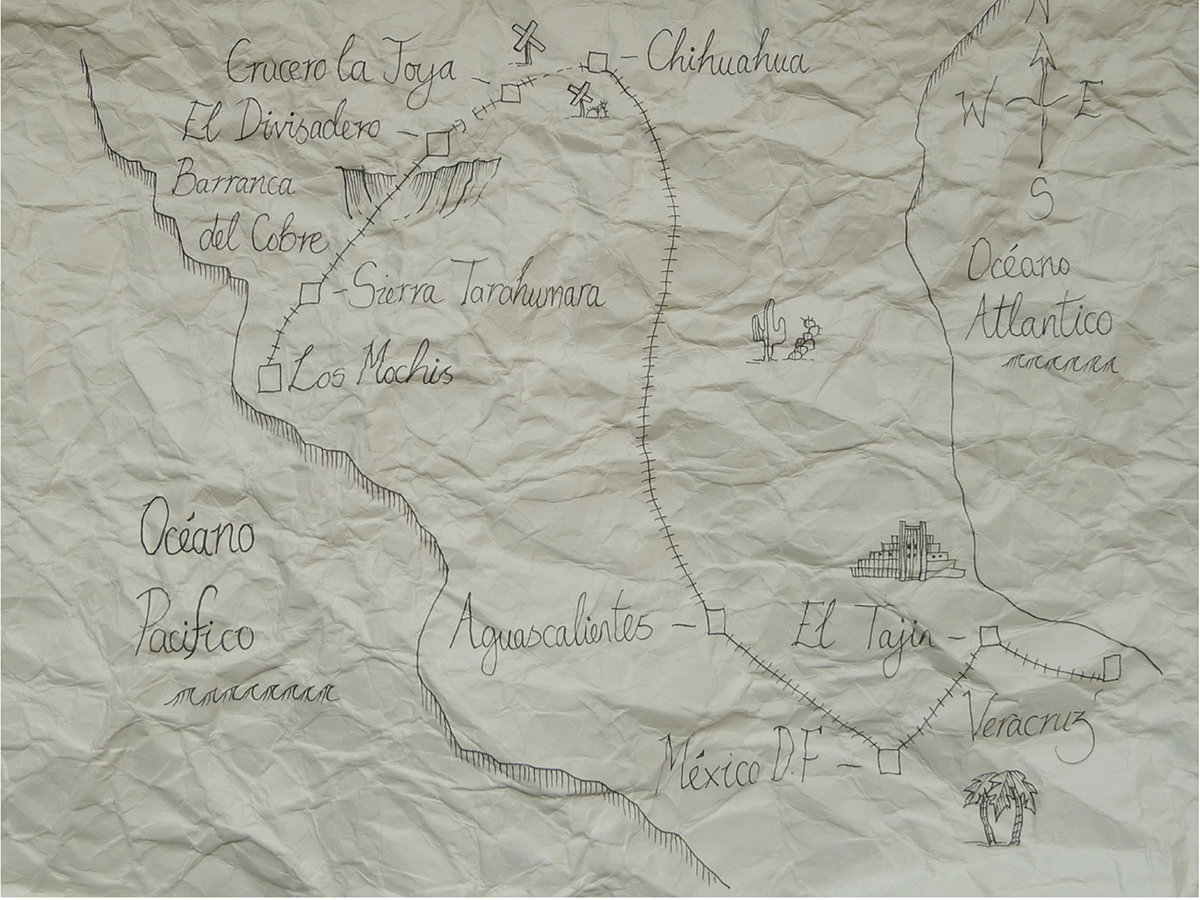 N
Crucero la Joya
Chihuahua
W
E
El Divisadero
Barranca
S
del Cobre
Océano
Sierra Tarahumara
Atlantico
Los Mochis
Océano
Pacifico
Aguascalientes
El Tajin
Veracruz
México D.F